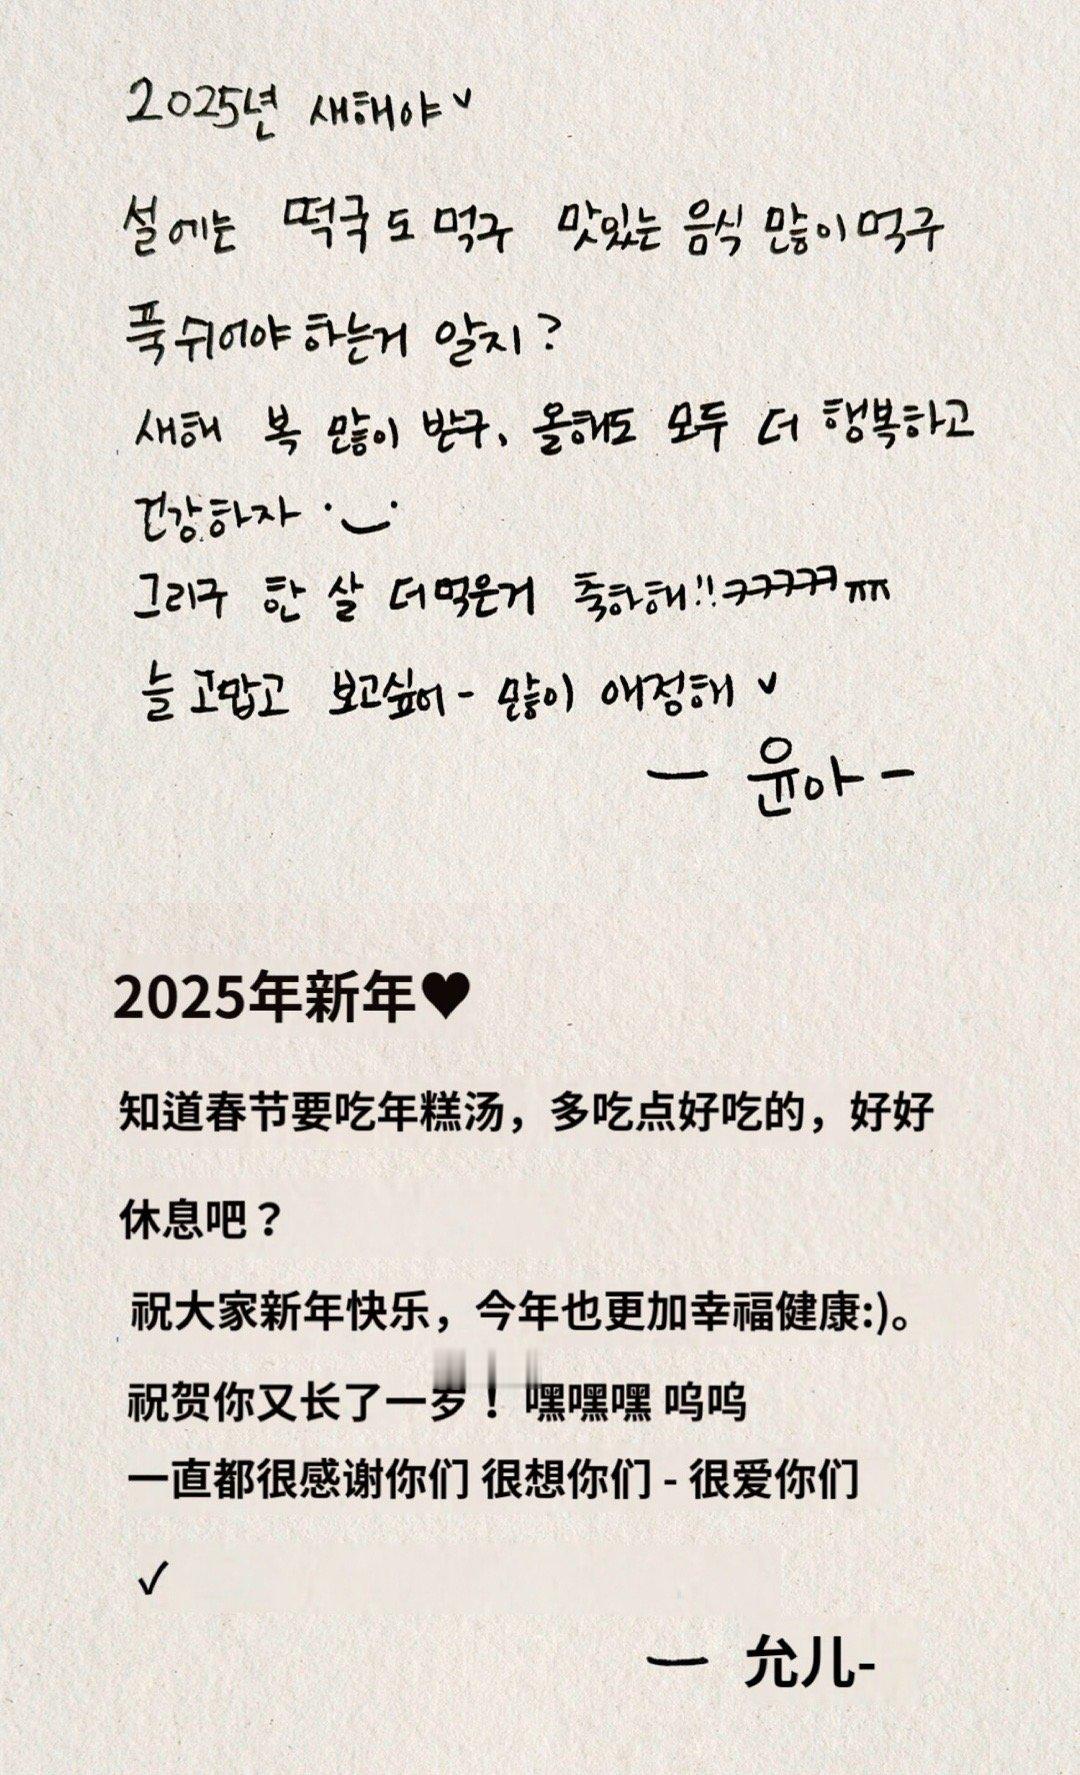 2025년 새해야✓
설에는 떡국도 먹구 맛있는 음식 많이먹구
푹쉬어야하는거 알지?
새해 복 많이 받구, 올해도 모두 더 행복하고
건강하자 ·‿·
그리구 한 살 더먹은거 축하해!!ㅋㅋㅋㅋㅋㅠㅠ
늘 고맙고 보고싶어- 많이 애정해 ✓
— 윤아 -
2025年新年♥
知道春节要吃年糕汤，多吃点好吃的，好好
休息吧？
祝大家新年快乐，今年也更加幸福健康:)。
祝贺你又长了一岁！嘿嘿嘿 呜呜
一直都很感谢你们 很想你们 - 很爱你们
✓
— 允儿-